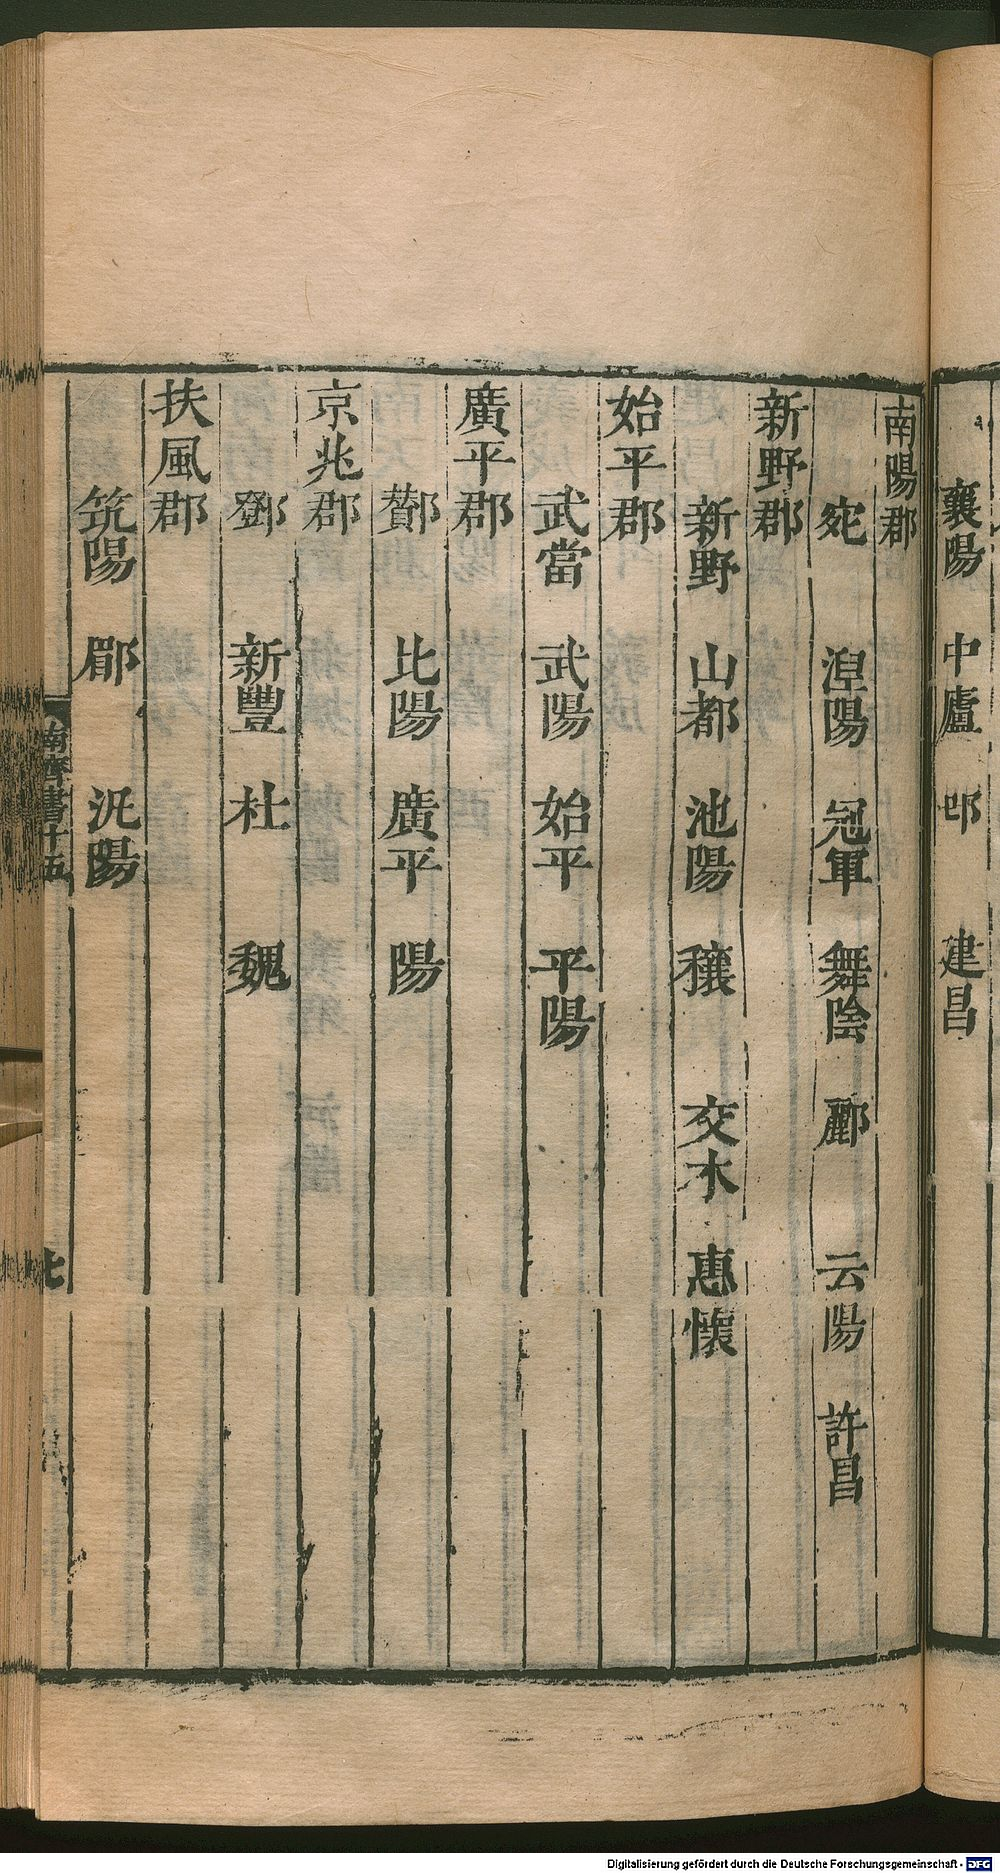 襄陽　中廬　邔　建昌
南陽郡
宛　湼陽　冠軍　舞陰　酈　云陽　許昌
新野郡
新野　山都　池陽　穰　交木　惠懷
始平郡
武當　武陽　始平　平陽
廣平郡
酇　比陽　廣平　陽
京兆郡
鄧　新豐　杜　魏
扶風郡
筑陽　郿　汎陽
南齊書十五
七
Digitalisierung gefördert durch die Deutsche Forschungsgemeinschaft - DFG